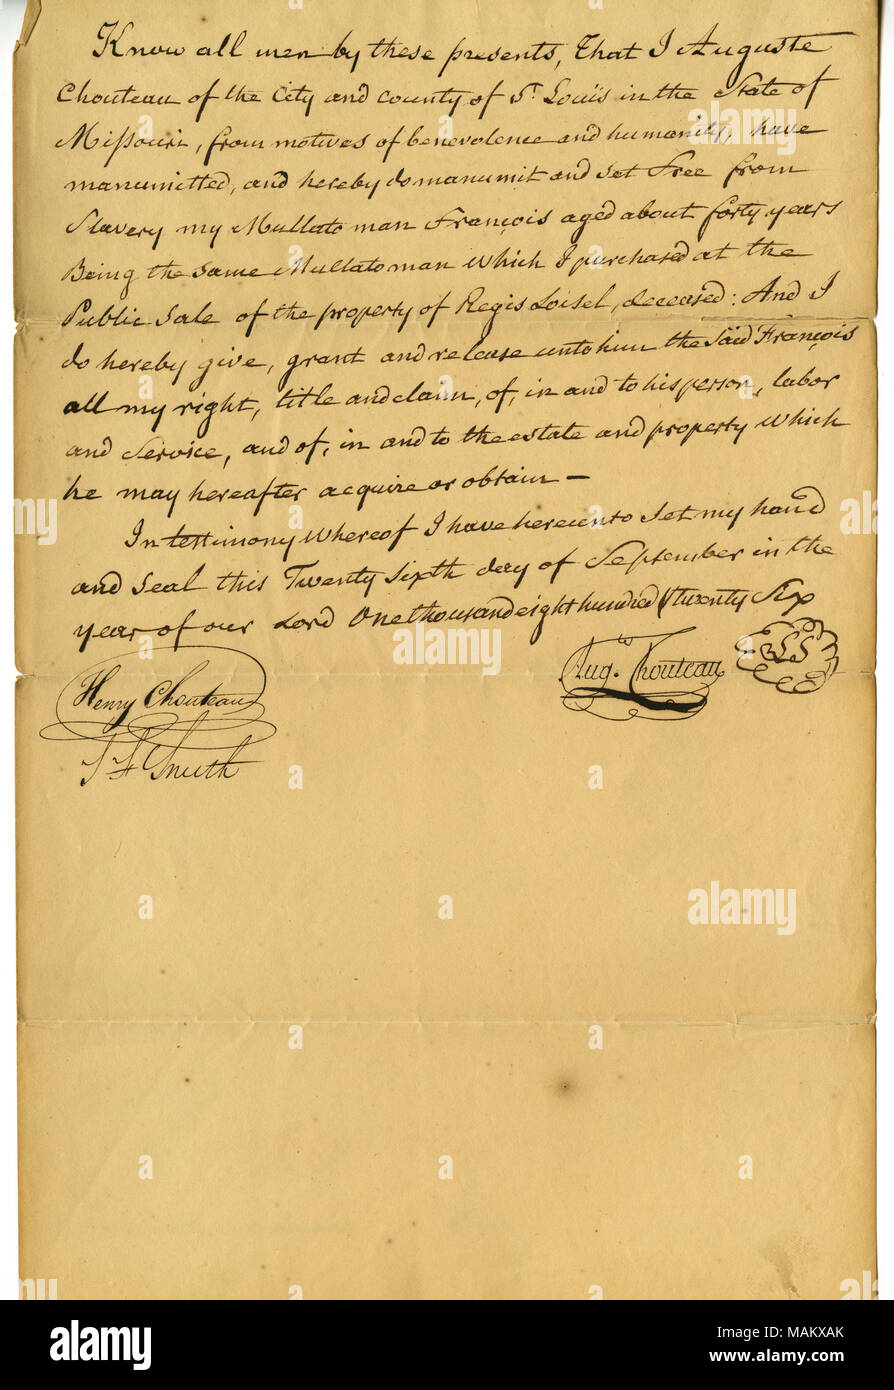 Know all men by these presents, That I Auguste
Chouteau of the City and County of St. Louis in the State of
Missouri, from motives of benevolence and humanity, have
manumitted, and hereby do manumit and set Free from
Slavery my Mullato man François aged about forty years
Being the same Mullato man which I purchased at the
Public Sale of the property of Regis Loisel, deceased: And I
do hereby give, grant and release unto him the Said François
all my right, title and claim, of, in and to his person, labor
and Service, and of, in and to the estate and property which
he may hereafter acquire or obtain —
In testimony whereof I have hereunto Set my hand
and seal this Twenty Sixth day of September in the
year of our Lord One thousand eight hundred & twenty Six
Augte Chouteau LS
Henry Chouteau
J F Smith
a alamy
alamy
Image ID: MAKXAK
www.alamy.com